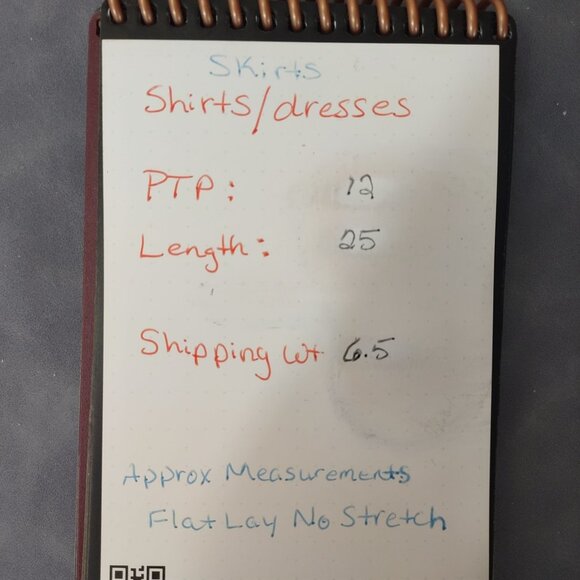 Skirts
Shirts/dresses
PTP: 12
Length: 25
Shipping Wt 6.5
Approx Measurements
Flat Lay No Stretch